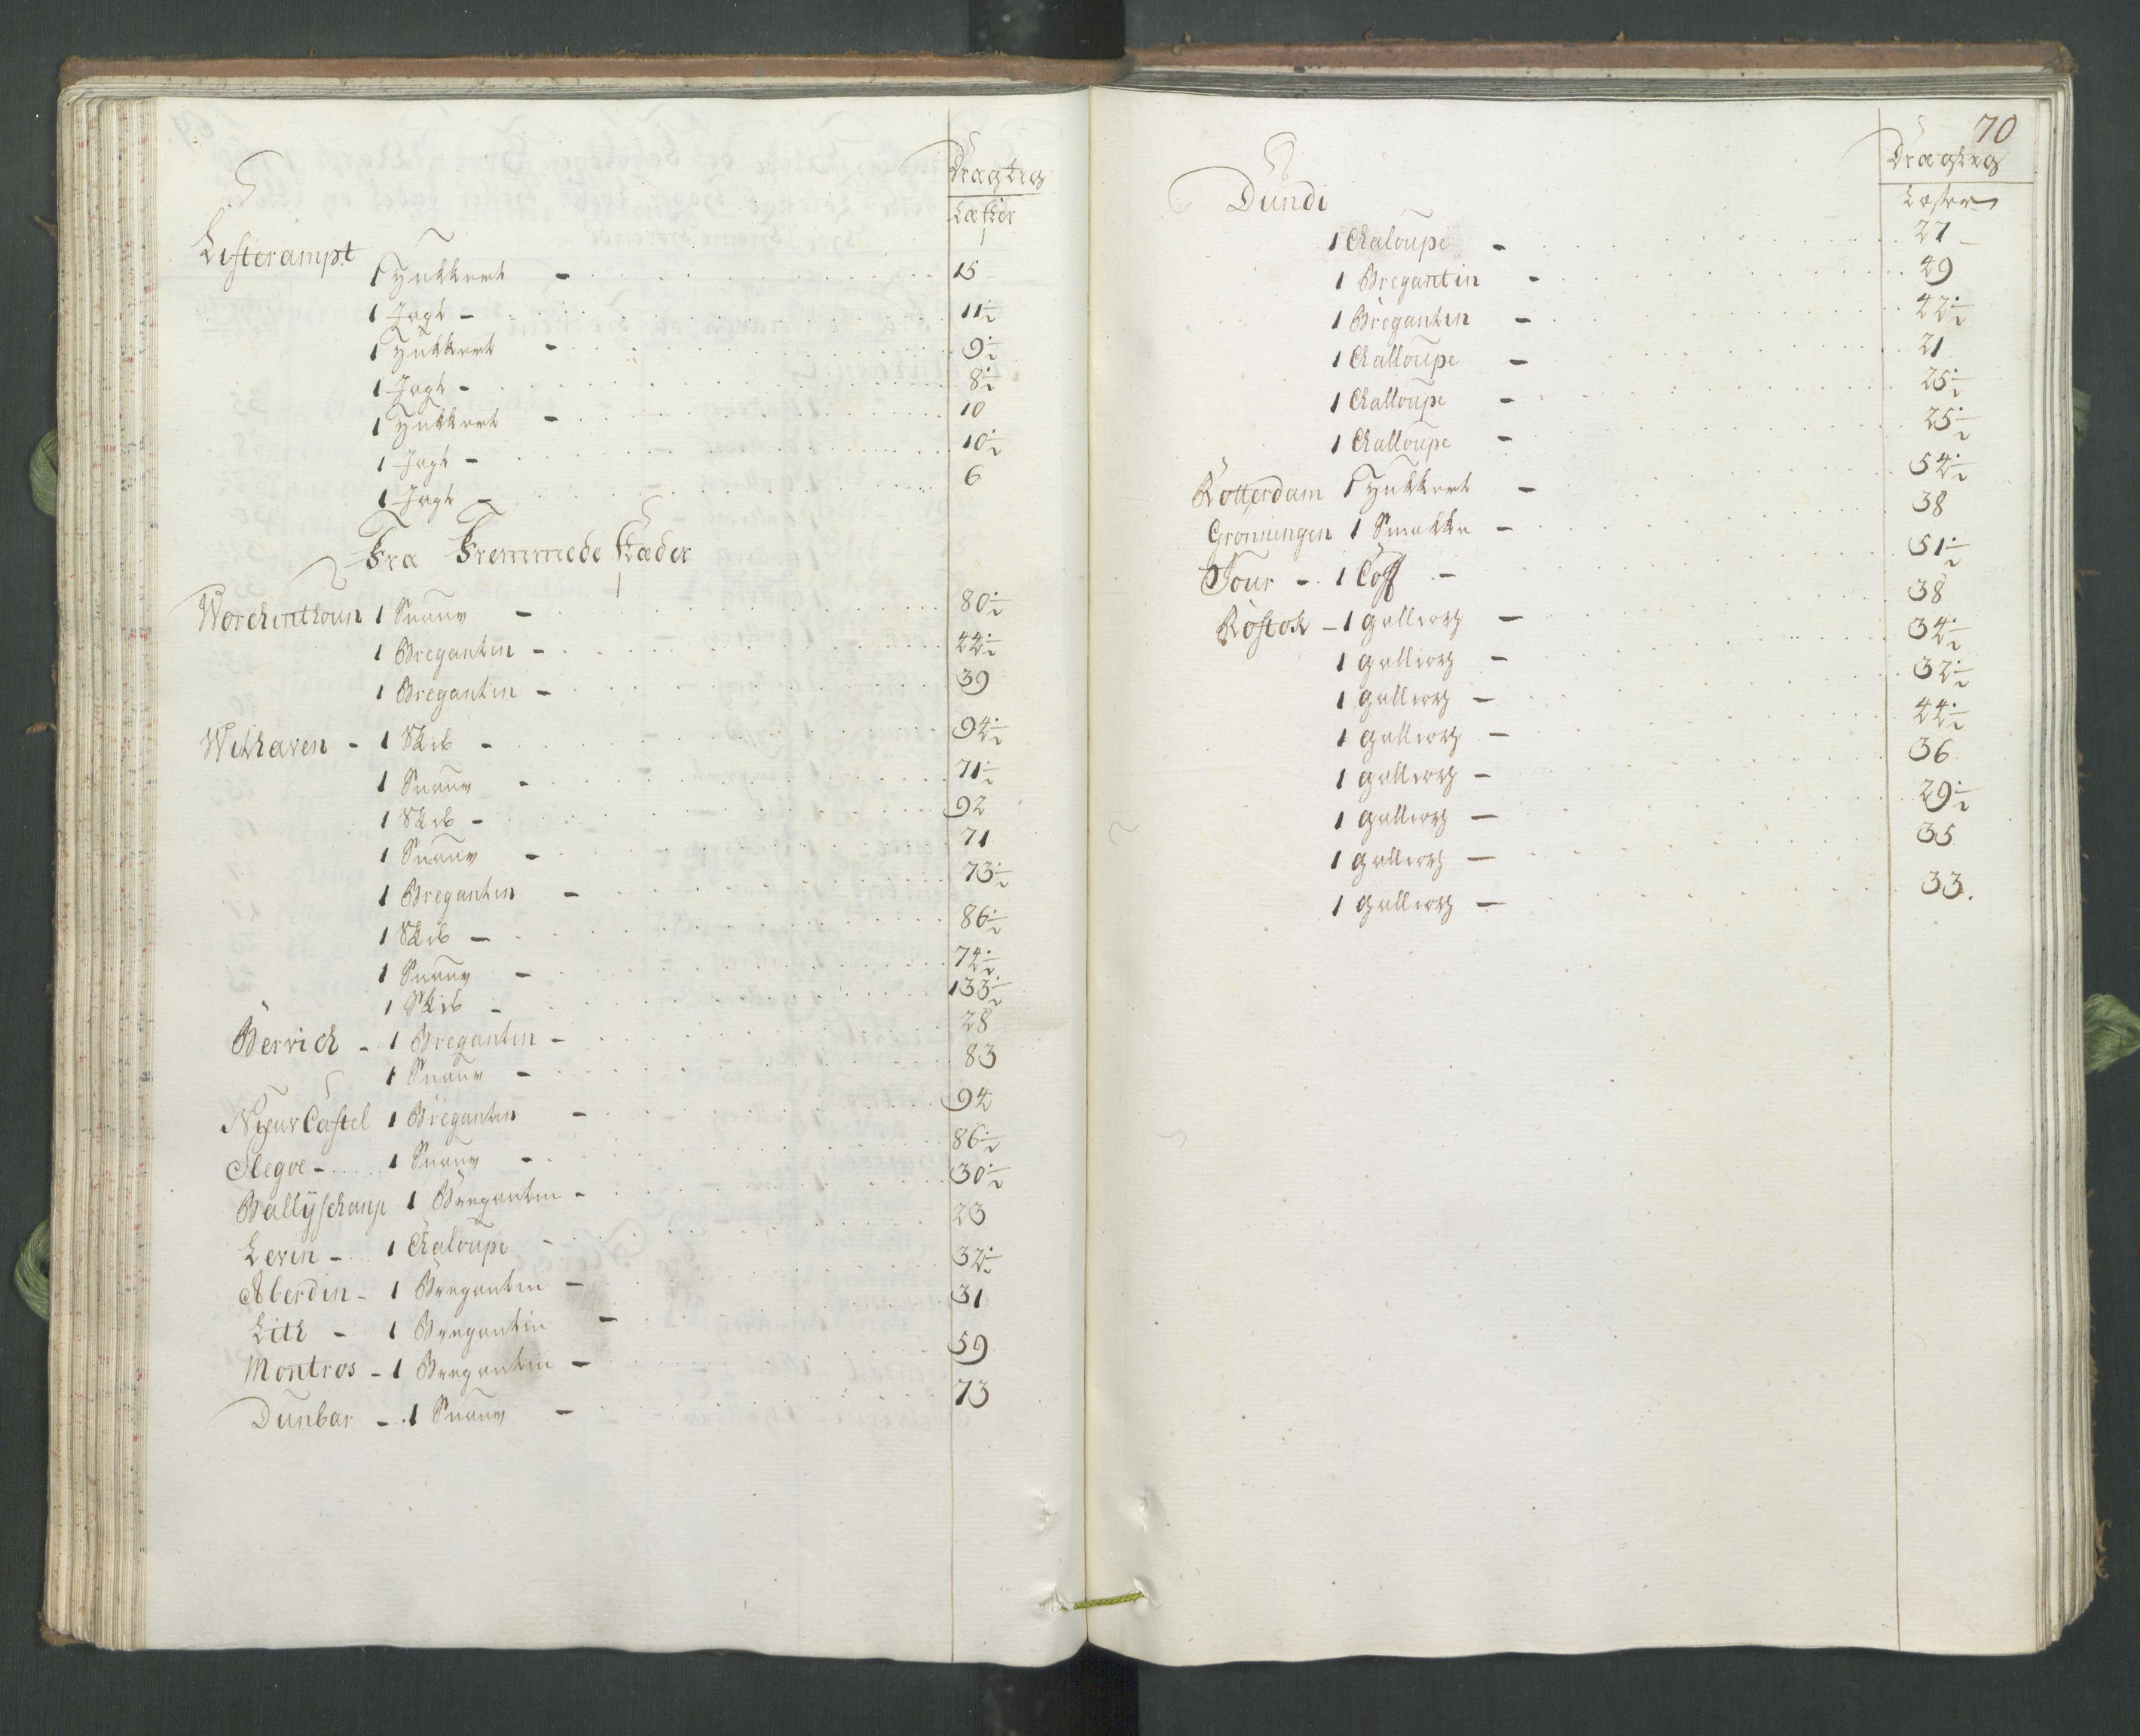 Dragteg
Læster
Listerampt 1 Hukkert - 15
1 Jagt - 11½
1 Hukkert - 9½
1 Jagt - 8½
1 Hukkert - 10
1 Jagt - 10½
1 Jagt - 6
Fra Fremmede stæder
Worchinthoun 1 Snauv - 80½
1 Bregantin - 44½
1 Bregantin - 39
Withaven - 1 Skib - 94½
1 Snauv - 71½
1 Skib - 92
1 Snauv - 71
1 Bregantin - 73½
1 Skib - 86½
1 Snauv - 74½
1 Skib - 133½
Berrich - 1 Bregantin - 28
1 Snauv - 83
Nyeur Castel 1 Bregantin - 94
Slegoe - 1 Snauv - 86½
Ballÿschanp 1 Bregantin - 30½
Levin - 1 Chaloupe - 23
Aberdin - 1 Bregantin - 32½
Lith - 1 Bregantin - 31
Montros - 1 Bregantin - 59
Dunbar - 1 Snauv - 73
70
Dragteg
Læster
Dundi
1 Chaloupe - 27
1 Bregantin - 49
1 Bregantin - 42½
1 Challoupe - 21
1 Challoupe - 25½
1 Challoupe - 25½
Rotterdam 1 Hukkert - 54½
Gronningen 1 Smakke - 38
Jour - 1 Coff - 51½
Rostok - 1 Galliorh - 38
1 Galliorh - 34½
1 Galliorh - 32½
1 Galliorh - 44½
1 Galliorh - 36
1 Galliorh - 29½
1 Galliorh - 35
1 Galliorh - 33.